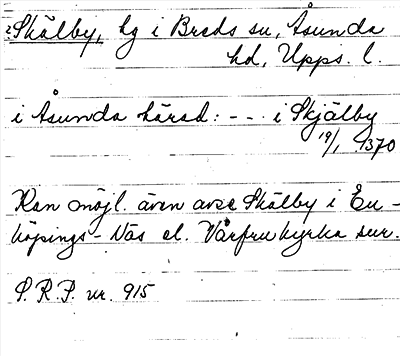 ?Skälby, hg i Breds sn, Åsunda
hd, Upps. l.
i Åsunda härad: - - - i Skjälby
19/1 1370
Kan möjl. även avse Skälby i En-
köpings-Näs el. Vårfrukyrka snr.
S. R. P. nr. 915